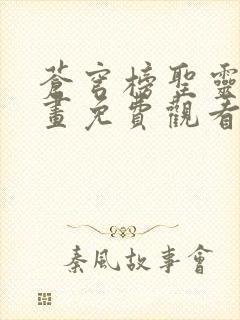 蒼穹榜聖靈
畫免費觀看
秦風故事會